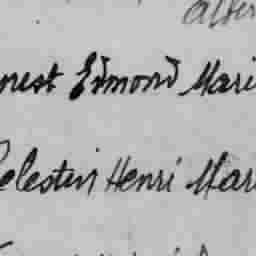 nest Edmond Mari
Celestin Henri Mar